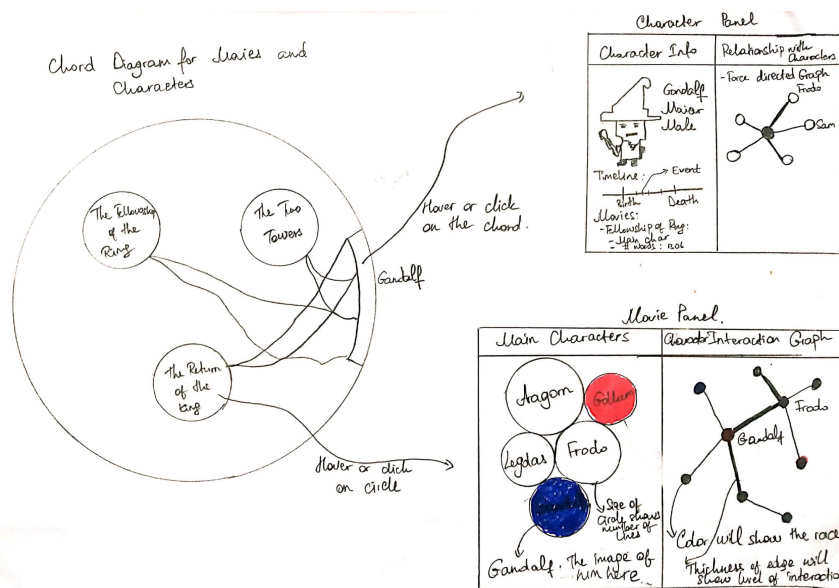 Chord Diagram for Movies and
Characters
The Fellowship
of the
Ring
The Two
Towers
Gandalf
The Return
of the
King
Hover or click
on the chord.
Hover or click
on circle
Character Panel
Character Info
Relationship with
Characters
Gandalf
Maiar
Male
Timeline:
Event
Birth
Death
Movies:
- Fellowship of Ring:
- Main char
- # words: 1306
- Force directed Graph
Frodo
Sam
Movie Panel.
Main Characters
Character Interaction Graph
Aragorn
Gollum
Legolas
Frodo
Size of
circle shows
number of
lines
Gandalf. The image of
him here.
Frodo
Gandalf
Color will show the race
Thickness of edge will
show level of interaction